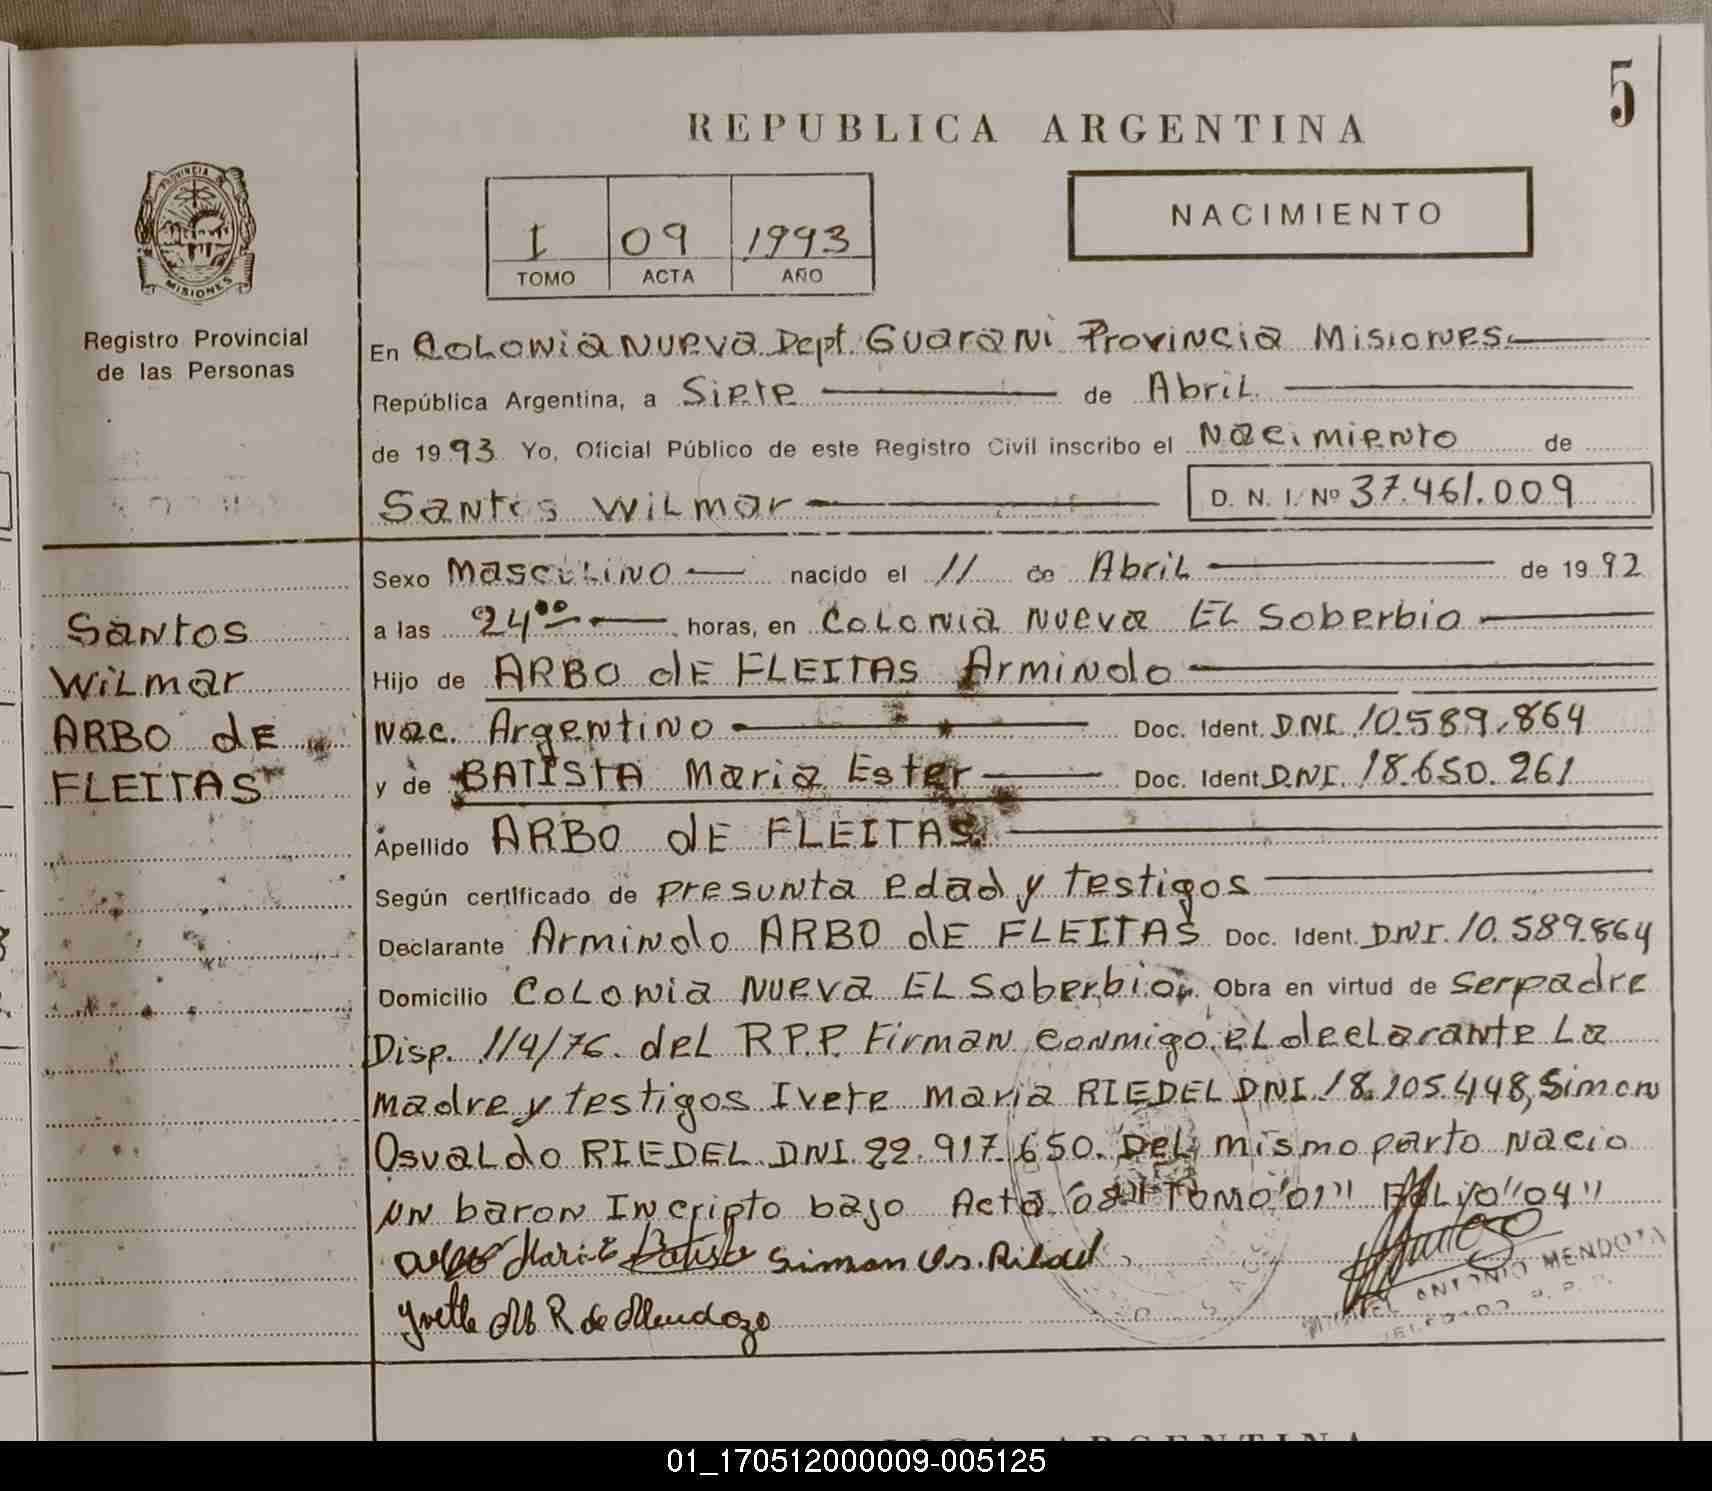 5
REPUBLICA ARGENTINA
PROVINCIA DE
MISIONES
Registro Provincial
de las Personas
I 09 1993
TOMO ACTA AÑO
NACIMIENTO
En Colonia Nueva Dept. Guarani Provincia Misiones
República Argentina, a Siete de Abril
de 1993 Yo, Oficial Público de este Registro Civil inscribo el Nacimiento de
Santos Wilmar D. N. I. Nº 37.461.009
Santos
Wilmar
ARBO dE
FLEITAS
Sexo Masculino nacido el 11 de Abril de 1992
a las 24⁰⁰ horas, en Colonia Nueva EL Soberbio
Hijo de ARBO dE FLEITAS Armindo
Nac. Argentino Doc. Ident. DNI. 10.589.864
y de BATISTA Maria Ester Doc. Ident. DNI. 18.650.261
Apellido ARBO dE FLEITAS
Según certificado de presunta edad y testigos
Declarante Armindo ARBO dE FLEITAS Doc. Ident. DNI. 10.589.864
Domicilio Colonia Nueva EL Soberbio Obra en virtud de ser padre
Disp. 114/76. del R.P.P. Firman conmigo el declarante La
madre y testigos Ivete Maria RIEDEL DNI. 18.105.448, Simon
Osvaldo RIEDEL DNI 22.917.650. Del mismo parto nacio
un baron Incripto bajo Acta "08" Tomo "01" Folio "04"
Maria Batista Simon Os. Ridel
Yvette M R de Mendozo
ANTONIO MENDOZA
01_170512000009-005125